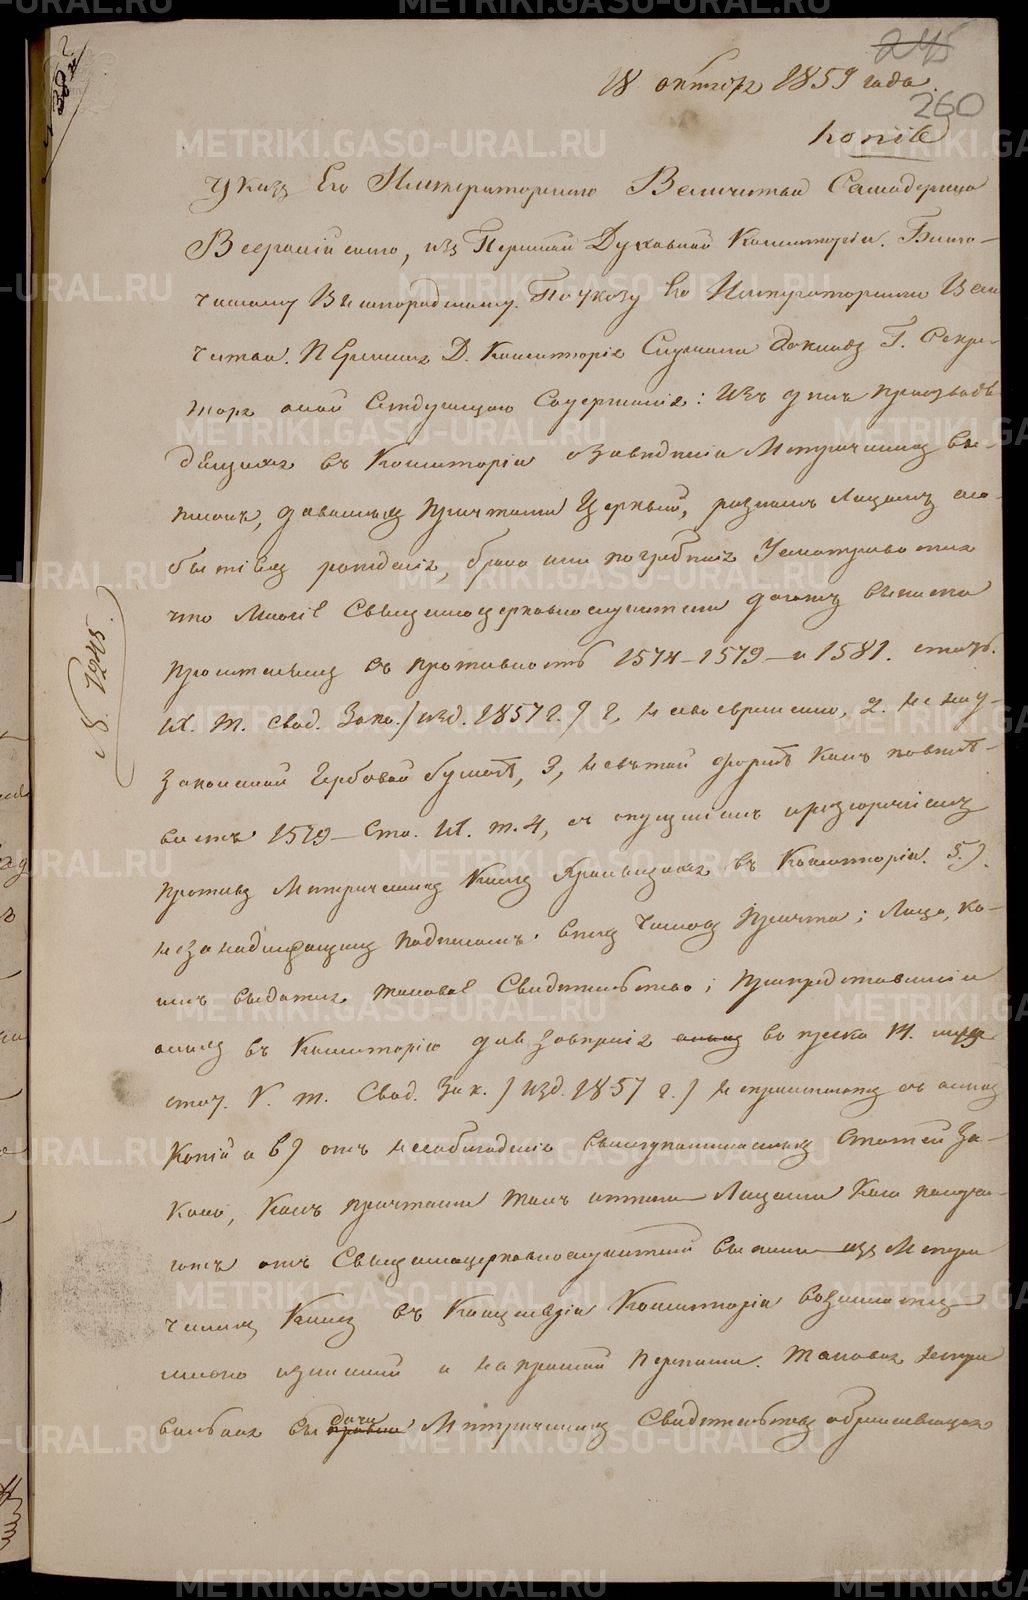 245
18 октября 1859 года.
260
Копія
Указъ Его Императорскаго Величества Самодержца
Всероссійскаго, изъ Пермской Духовной Консисторіи. Благо-
чинному Вышгородскому. По указу Его Императорскаго Вели
чества. Пермская Д. Консисторія Слушали докладъ Г. Секре-
таря оной Следующаго Содержанія: Изъ дѣлъ производ
дящихся въ Консисторіи о завѣденіи Метрическихъ вы-
писокъ, даваемыхъ Причтами Церквей, разнымъ лицамъ о со-
бытіяхъ рожденія, брака или погребенія Усматривается
что Многіе Священноцерковнослужители даютъ выписи
просителямъ въ противность 1574-1579-и 1581. статей.
IX. т. свод. Зако. (изд. 1857 г.) 1, не своевременно, 2. не на у-
законенной Гербовой бумагѣ, 3, не въ той формѣ какъ повелѣ-
ваетъ 1579-Ста. IX. т. 4, съ опущеніемъ и разнорѣчіемъ
противъ Метрическихъ Книгъ хранящихся въ Консисторіи. 5.)
не за надлежащимъ подписомъ всѣхъ Членовъ Причта; Лица, ко-
имъ выдаются таковыя Свидѣтельства; при представленіи
оныхъ въ Консисторію для завѣренія
стат. V. т. Свод. Зак. (изд. 1857 г.) не прилагаютъ съ оныхъ
Копій и 6) отъ несоблюденія вышеупомянутыхъ Статей За-
кона, какъ причтами такъ и тѣми Лицами кои получа-
ютъ отъ Священноцерковнослужителей выписи изъ Метри
ческихъ Книгъ въ Канцеляріи Консисторіи возникаетъ
много излишней и напрасной переписки. Таковая
выдачи Метрическихъ Свидѣтельствъ
№ 7245.